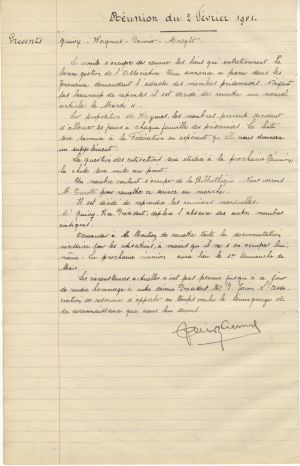 Réunion du 2 Février 1941.
Présents
Le comité s'occupe de renouer les liens qui entretiennent la
bonne gestion de l'Association. Une annonce a paru dans les
journaux demandant l'adresse des membres prisonniers. N'ayant
pas beaucoup de réponses il est décidé de remettre un nouvel
article le Mardi 4.
Sur proposition de Wagnies, les membres présents décident
d'allouer 20 francs à chaque famille de prisonnier. La liste
sera soumise à la Fédération en espérant qu'elle nous donnera
un supplément.
La question des cotisations sera étudiée à la prochaine Réunion,
la chose sera mise au point.
Un membre voulant s'occuper de la Bibliothèque. Nous verrons
M. pour remettre ce service en marche.
Il est décidé de reprendre les réunions mensuelles.
Mr Quivy, Vice Président, déplore l'absence des autres membres
Demander à Mr de remettre toute la documentation
nécessaire pour les cotisations, à moins qu'il ne s'en occupe lui-
même. La prochaine réunion aura lieu le 1er Dimanche de
Mars.
Les circonstances actuelles n'ont pas permis jusqu'à ce jour
de rendre hommage à notre dévoué Président Mr L'Asso-
ciation se réserve d'apporter en temps voulu le témoignage de
la reconnaissance que nous lui devons.